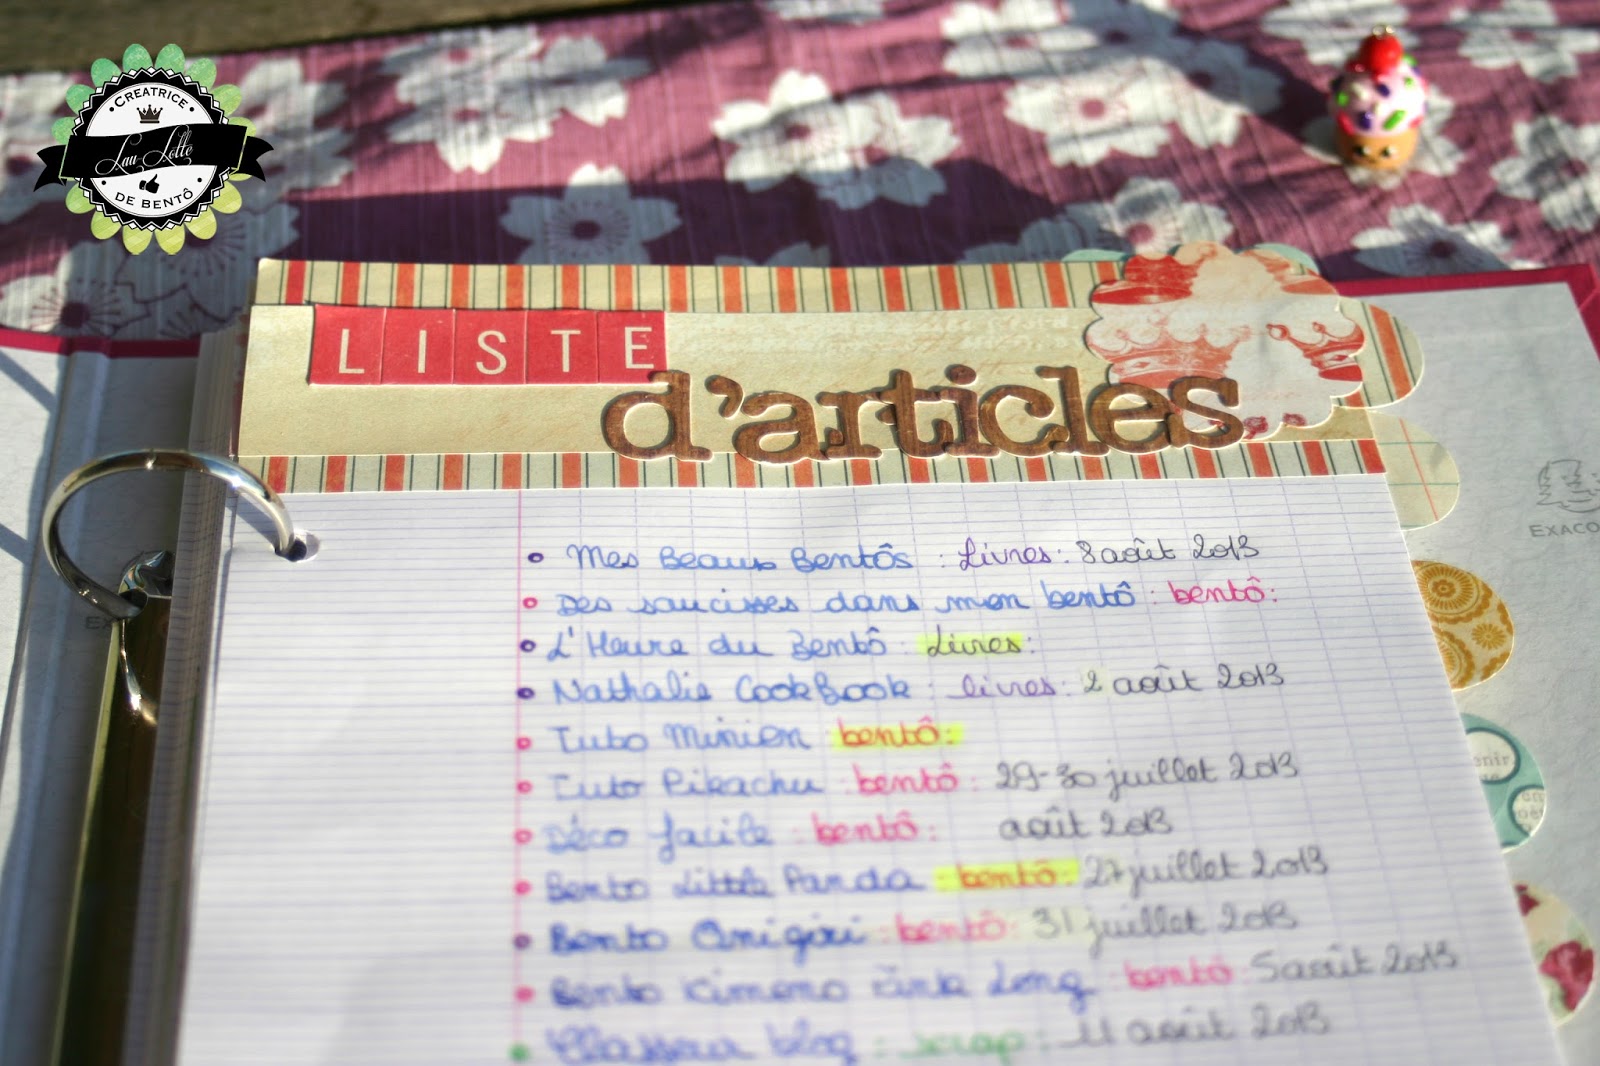 CREATRICE
Lau-Lotte
DE BENTÔ
LISTE
d'articles
EXACO
Ex
• Mes Beaux Bentôs : Livres : 8 août 2013
• Des saucisses dans mon bentô : bentô :
• L'Heure du Bentô : Livres :
• Nathalie CookBook : livres : 2 août 2013
• Tuto Minion bentô :
• Tuto Pikachu : bentô : 29-30 juillet 2013
• Déco facile : bentô : août 2013
• Bento Little Panda : bentô : 27 juillet 2013
• Bento Onigiri : bentô : 31 juillet 2013
• Bento Kimono Long : bentô : 5 août 2013
• Classeur blog : scrap : 11 août 2013
enir